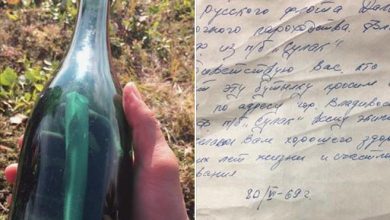 русского флота Даль
очного пароходства. Вл
р из п/б "Сулак"
ветствую Вас, кто
т эту бутылку просим
по адресу гор. Владивос
п/б "Сулак" всему экип
Вам хорошего здо
их лет жизни и счастл
вания
20/VI-69 г.